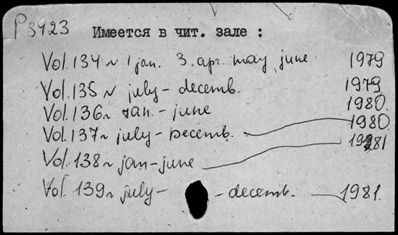 P3423 Имеется в чит. зале :
Vol. 134 N 1 jan. 3. apr. may, june 1979
Vol. 135 N july - decemb. 1979
Vol. 136 N jan. - june 1980.
Vol. 137 N july - decemb. 1980.
Vol. 138 N jan - june 1981
Vol. 139 N july - - decemb. 1981.